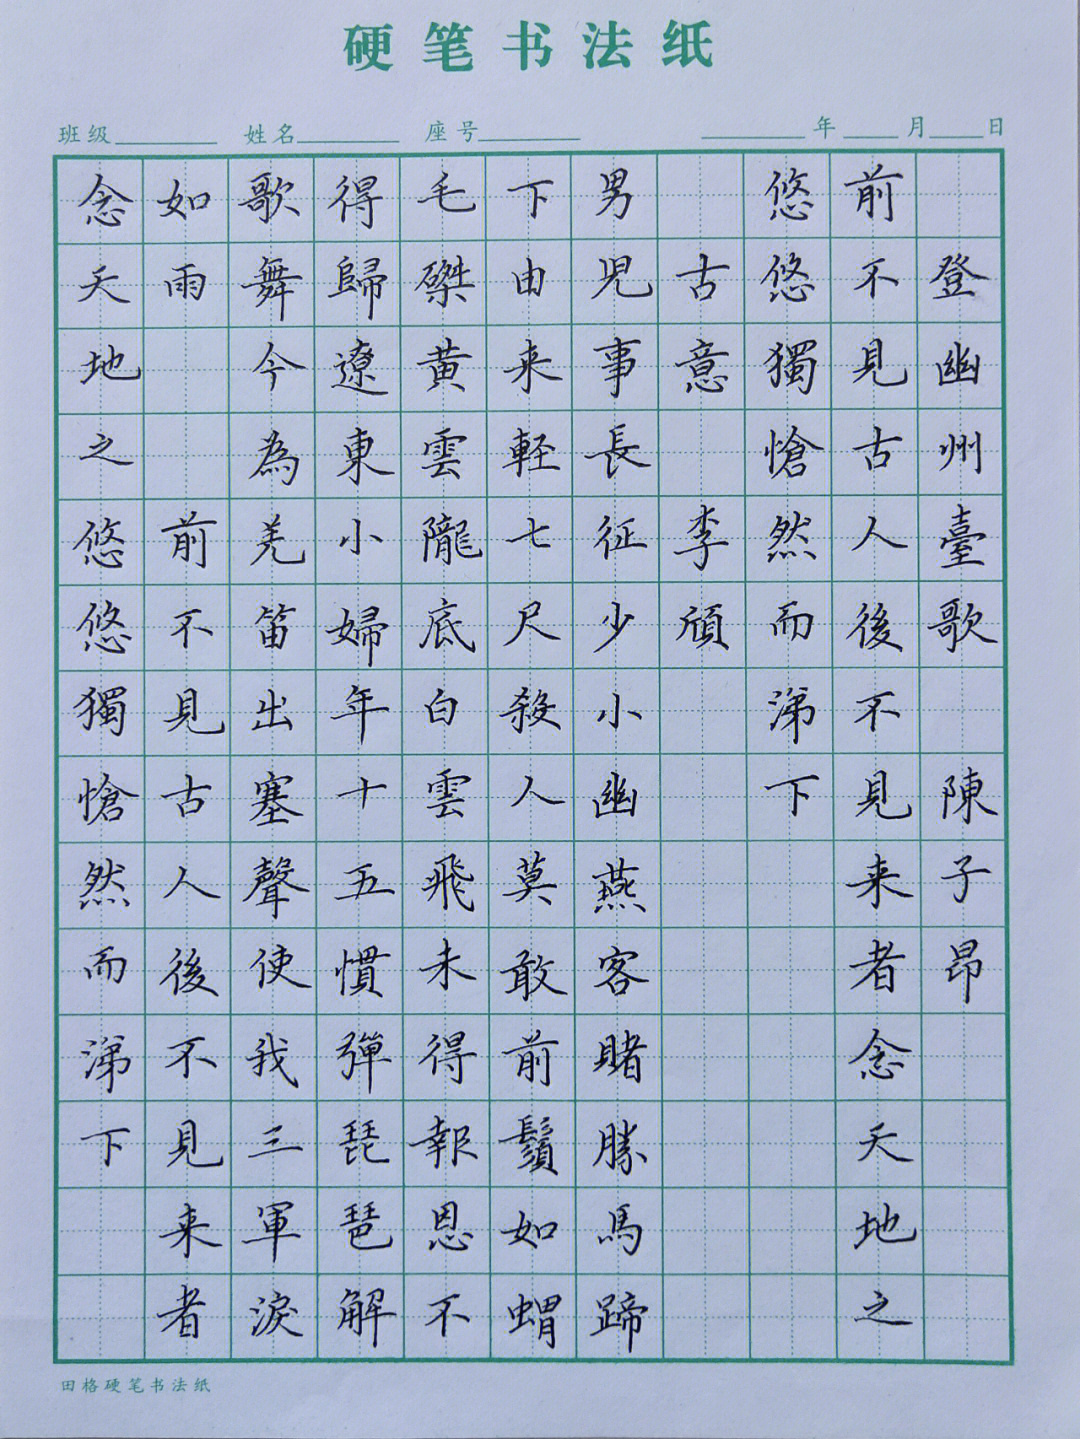 硬笔书法纸
班级 姓名 座号 年 月 日
登幽州臺歌 陳子昂
前不見古人後不見来者念天地之
悠悠獨愴然而涕下
古意 李頎
男児事長征少小幽燕客賭勝馬蹄
下由来軽七尺殺人莫敢前鬚如蝟
毛磔黃雲隴底白雲飛未得報恩不
得歸遼東小婦年十五慣彈琵琶解
歌舞今為羌笛出塞聲使我三軍淚
如雨 前不見古人後不見来者
念天地之悠悠獨愴然而涕下
田格硬笔书法纸